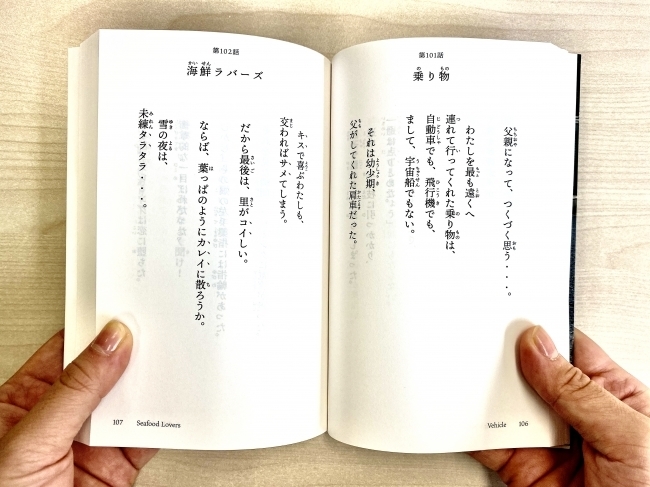 第101話
乗り物
父親になって、つくづく思う・・・。
わたしを最も遠くへ
連れて行ってくれた乗り物は、
自動車でも、飛行機でも、
まして、宇宙船でもない。
それは幼少期。
父がしてくれた肩車だった。
Vehicle 106
第102話
海鮮ラバーズ
キスで喜ぶわたしも、
交わればサメてしまう。
だから最後は、里がコイしい。
ならば、葉っぱのようにカレイに散ろうか。
雪の夜は、
未練タラタラ・・・。
107 Seafood Lovers